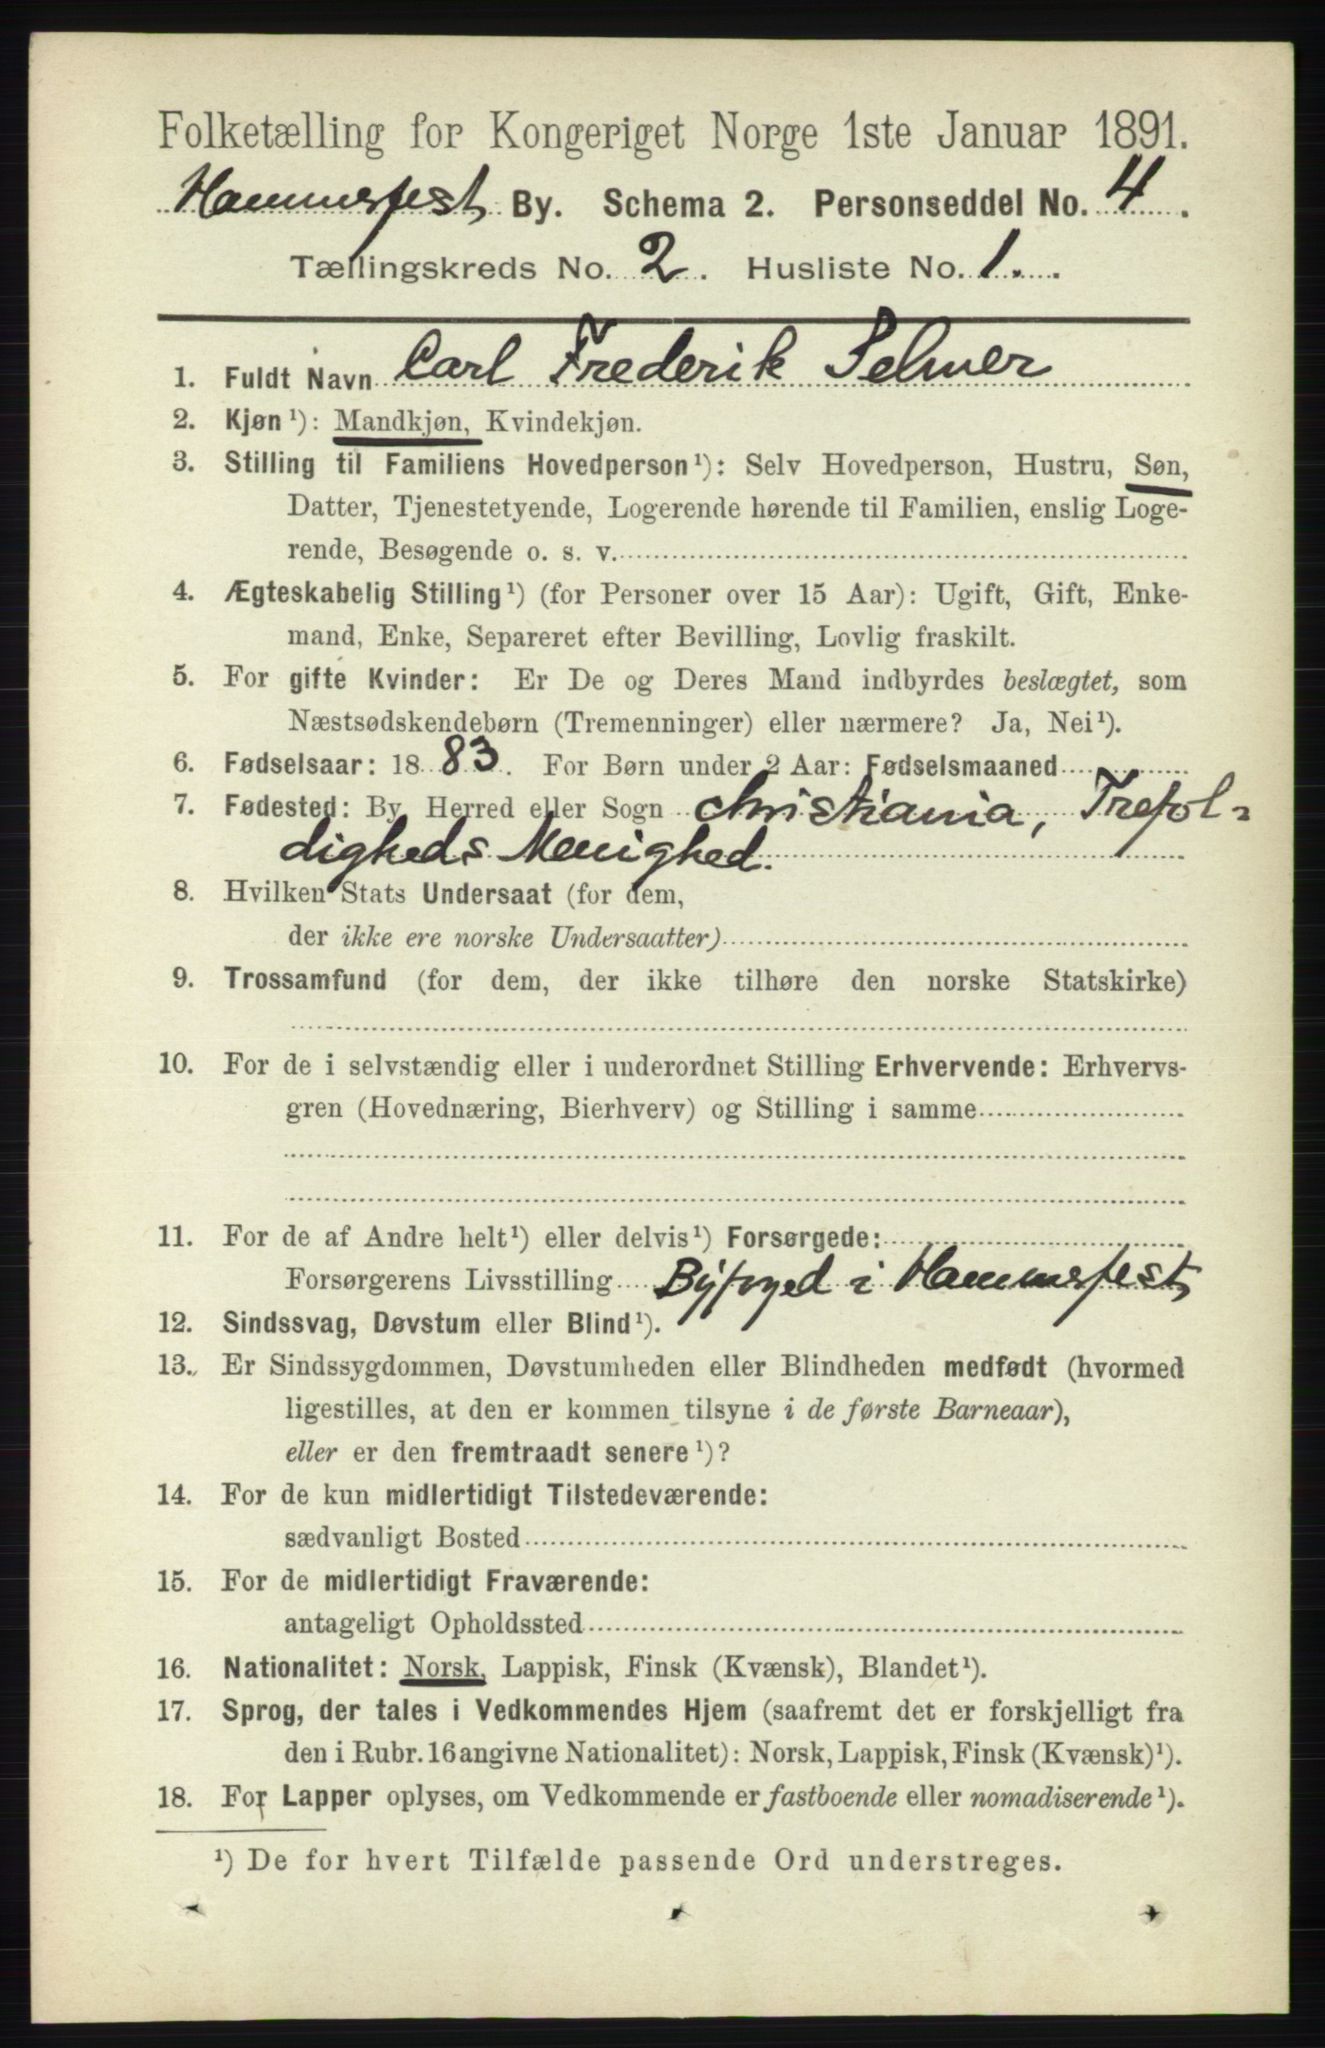 Folketælling for Kongeriget Norge 1ste Januar 1891.
Hammerfest By. Schema 2. Personseddel No. 4.
Tællingskreds No. 2. Husliste No. 1.
1. Fuldt Navn Carl Frederik Selmer
2. Kjøn¹): Mandkjøn, Kvindekjøn.
3. Stilling til Familiens Hovedperson¹): Selv Hovedperson, Hustru, Søn,
Datter, Tjenestetyende, Logerende hørende til Familien, enslig Loge-
rende, Besøgende o. s. v.
4. Ægteskabelig Stilling¹) (for Personer over 15 Aar): Ugift, Gift, Enke-
mand, Enke, Separeret efter Bevilling, Lovlig fraskilt.
5. For gifte Kvinder: Er De og Deres Mand indbyrdes beslægtet, som
Næstsødskendebørn (Tremenninger) eller nærmere? Ja, Nei¹).
6. Fødselsaar: 1883. For Børn under 2 Aar: Fødselsmaaned
7. Fødested: By, Herred eller Sogn Christiania, Trefol-
digheds Menighed.
8. Hvilken Stats Undersaat (for dem,
der ikke ere norske Undersaatter)
9. Trossamfund (for dem, der ikke tilhøre den norske Statskirke)
10. For de i selvstændig eller i underordnet Stilling Erhvervende: Erhvervs-
gren (Hovednæring, Bierhverv) og Stilling i samme
11. For de af Andre helt¹) eller delvis¹) Forsørgede:
Forsørgerens Livsstilling Byfoged i Hammerfest
12. Sindssvag, Døvstum eller Blind¹).
13. Er Sindssygdommen, Døvstumheden eller Blindheden medfødt (hvormed
ligestilles, at den er kommen tilsyne i de første Barneaar),
eller er den fremtraadt senere¹)?
14. For de kun midlertidigt Tilstedeværende:
sædvanligt Bosted
15. For de midlertidigt Fraværende:
antageligt Opholdssted
16. Nationalitet: Norsk, Lappisk, Finsk (Kvænsk), Blandet¹).
17. Sprog, der tales i Vedkommendes Hjem (saafremt det er forskjelligt fra
den i Rubr. 16 angivne Nationalitet): Norsk, Lappisk, Finsk (Kvænsk)¹).
18. For Lapper oplyses, om Vedkommende er fastboende eller nomadiserende¹).
¹) De for hvert Tilfælde passende Ord understreges.